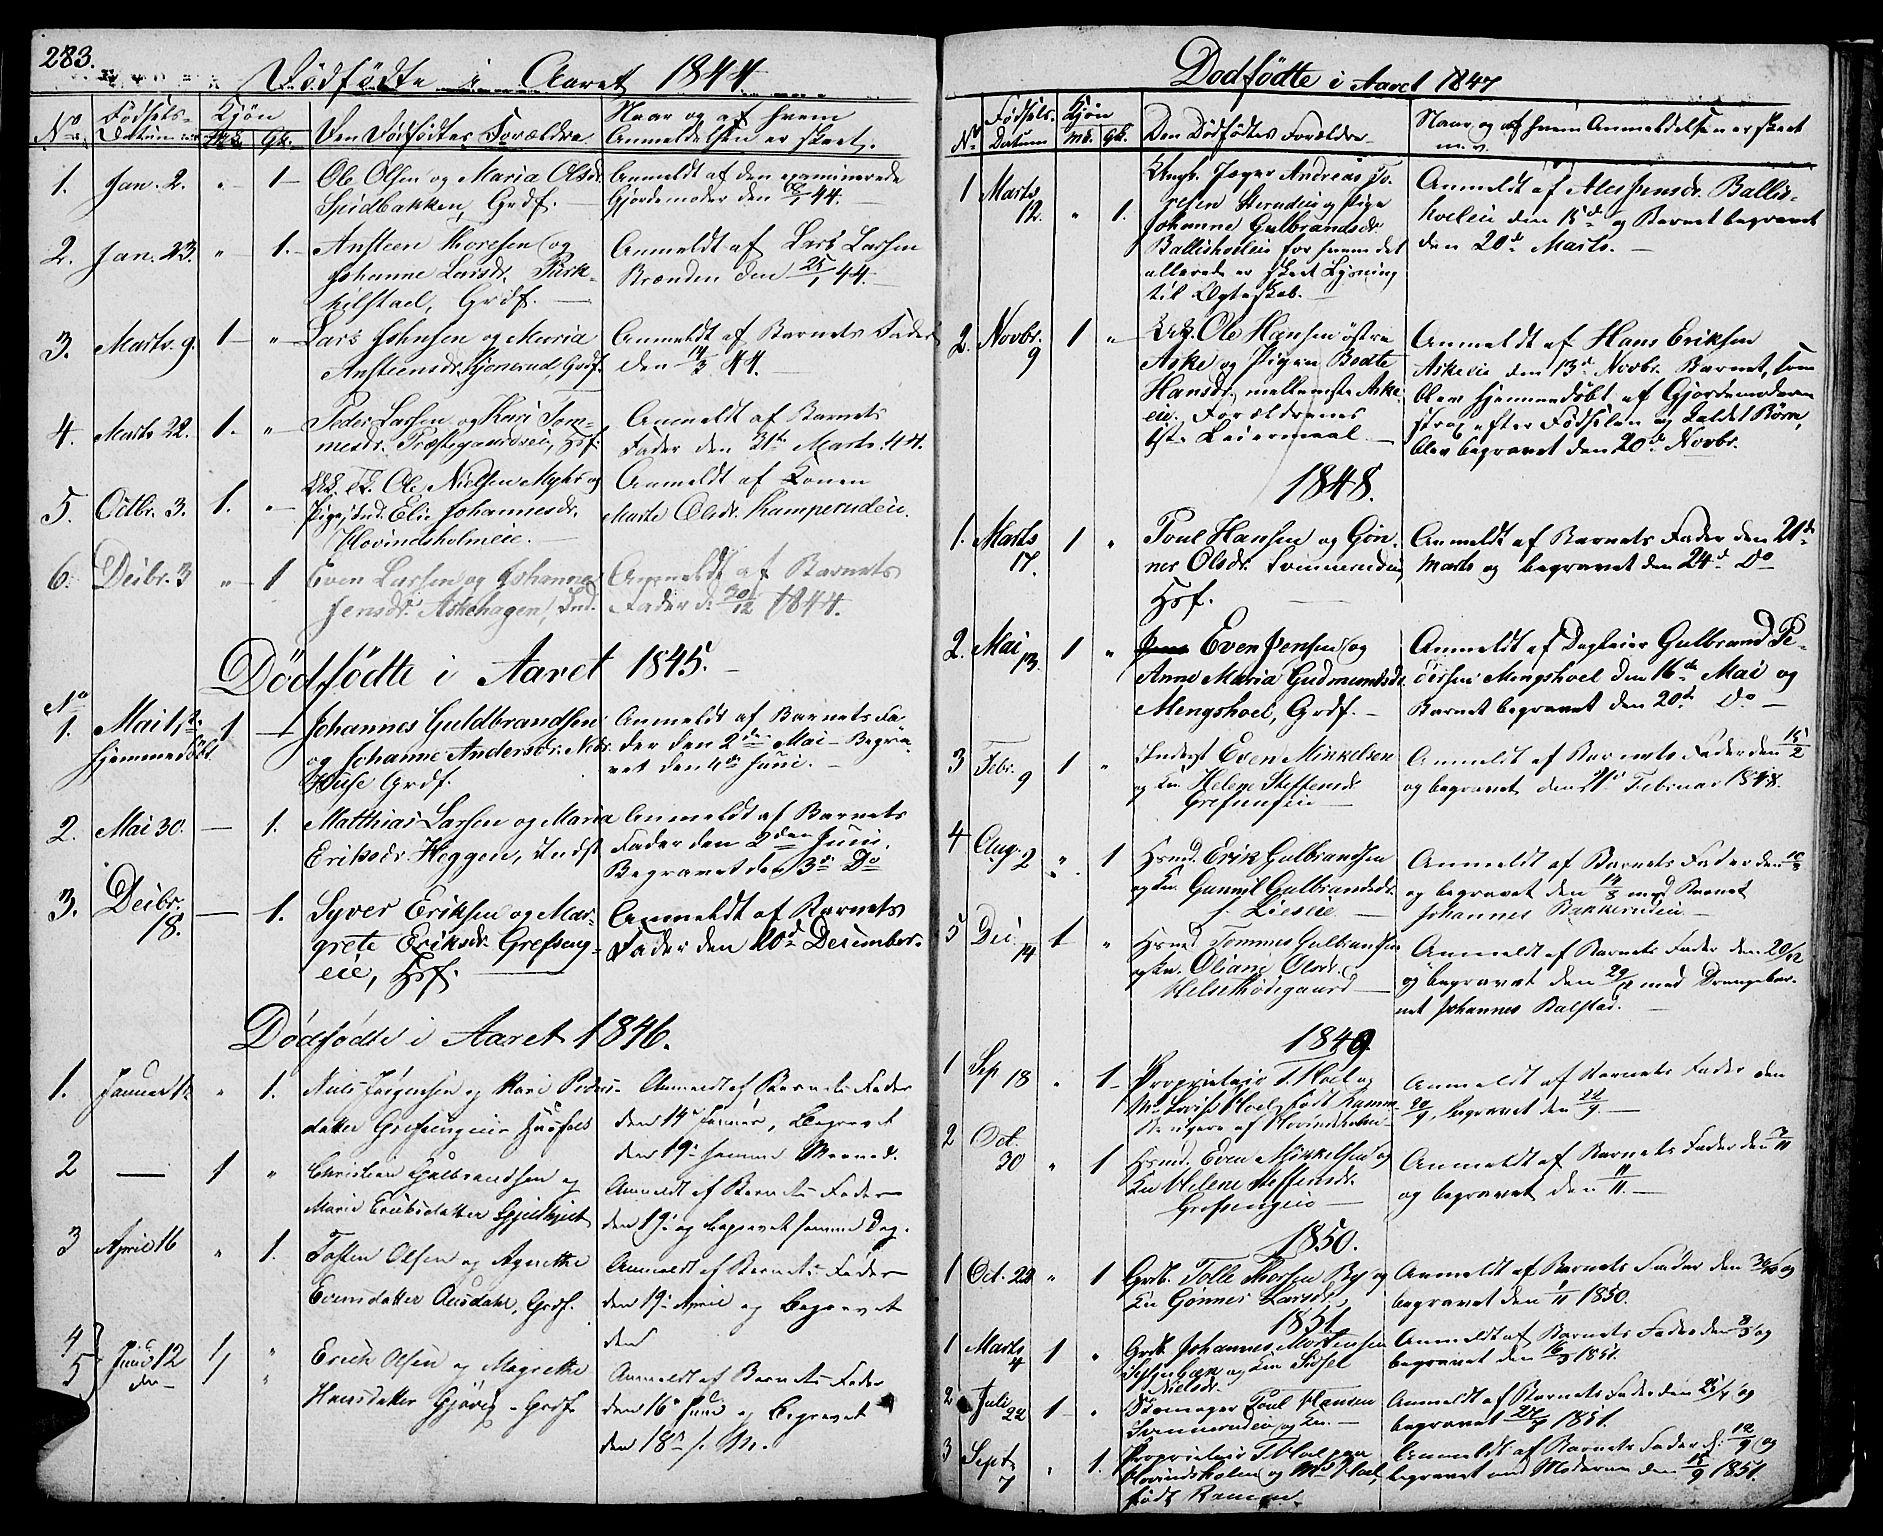 283.
Dödfödte i Aaret 1844
No
Födsels-
Datum
Kjön
Mk. Qk.
Den Dödfödtes Forældre
Naar og af hvem
Anmeldelsen er skeet.
1. Jan. 2. " 1
Ole Olsen og Maria Olsdr.
Spidbakken, Grdf.
Anmeldt af den examinerede
Gjordemoder den 44.
2. Jan. 23. " 1.
Ansteen Thoresen og
Johanne Larsdr.
Grdf.
Anmeldt af Lars Larsen
Brænden den 25/1 44.
3. Marts 9. 1 "
Lars Johnsen og Maria
Anstensdr. Kjonerud, Grdf.
Anmeldt af Barnets Fader
den 14/3 44.
4. Marts 22. 1. "
Peder Larsen og Kari Tom-
mesdr. Præstegaardseie, Hsf.
Anmeldt af Barnets
Fader den 31te Marts 44.
5. Octbr. 3. 1. "
Ole Nielsen Myhr og
Pige, Ind. Elie Johannesdr.
Hovindsholmeie.
Anmeldt af Konen
Marte Olsdr. Kamperudeie.
6. Decbr. 3 " 1
Even Larsen og Johanne
Jensdr. Askehagen, Ind.
Anmeldt af Barnets
Fader d. 30/12 1844.
Dödfödte i Aaret 1845.
No
1. Mai 1ste 1
hjemmedöbt
Johannes Guldbrandsen
og Johanne Andersdr. Nedr.
Huse Grdf.
Anmeldt af Barnets Fa-
der den 2den Mai - Begra-
vet den 4de Juni.
2. Mai 30. — 1.
Matthias Larsen og Maria
Eriksdr. Heggen, Indst
Anmeldt af Barnets
Fader den 2den Juni.
Begravet den 3de Do
3. Decbr. 18. — 1.
Syver Eriksen og Mar-
grete Eriksdr. Grefseng-
eie, Hsf.
Anmeldt af Barnets
Fader den 20de December.
Dödfödte i Aaret 1846.
1. Januar " 1.
Niels Jørgensen og Kari Peders-
datter Grefsengeie Huusfolk
Anmeldt af Barnets Fader
den 14de Januar, Begravet
den 19de samme Maaned.
2 — 1 "
Christian Gulbrandsen og
Marie Eriksdatter
Anmeldt af Barnets Fader
den 19de og begravet samme Dag.
3 April 16 " 1.
Tosten Olsen og Agnethe
Evensdatter Ausdahl, Grdf.
Anmeldt af Barnets Fader
den 19de April og begravet
den
4
5 Juni 12 1/1 "
Erich Olsen og Magrethe
Hansdatter Gjövig - Grdf.
Anmeldt af Barnets Fader
den 16de Juni og begravet
den 18de s. M.
Dodfødte i Aaret 1847
No
Fødsels-
Datum
Kjøn
Mk. Qk.
Den Dødfødtes Forældre
Naar og af hvem Anmeldelsen er skeet
1 Marts 12. " 1.
Ungk. Jæger Andreas To-
resen Sterudeie og Pige
Johanne Gulbrandsdr.
Ballishoeleie for hvem det
allerede er skeet Lysning
til Ægteskab.
Anmeldt af Ballis-
hoeleie den 15de og Barnet begravet
den 20de Marts.
2. Novbr. 9 1 "
Ole Hansen østre
Aske og Pigen Bodte
Hansdr. mellemste Aske-
eie. Forældrenes
1ste Leiermaal.
Anmeldt af Hans Eriksen
Askeeie den 13de Novbr. Barnet, som
blev hjemmedøbt af Gjordemoderen
strax efter Fødselen og kaldet Børn,
blev begravet den 20de Novbr.
1848.
1. Marts 17. 1 "
Poul Hansen og Gøn-
ner Olsdr. Svinnerudeie
Hsf.
Anmeldt af Barnets Fader den 21de
Marts og begravet den 24de Do
2. Mai 13. 1 "
Even Jensen og
Anne Maria Gudmundsdr.
Mengshoel, Grdf.
Anmeldt af Dagleier Gulbrand Pe-
dersen Mengshoel den 16de Mai og
Barnet begravet den 20de Do
3 Febr. 9 1 "
Inderst Even Mikkelsen
og Kn. Helene Steffensdr.
Grefsengeie
Anmeldt af Barnets Fader den 15/2
og begravet den 21de Februar 1848.
4 Aug. 2 " 1
Hsmd. Erik Gulbrandsen
og Kn. Gunnil Gulbrandsdr.
Lieseie
Anmeldt af Barnets Fader den
og begravet den med Barnet
Johannes Bakkerudeie
5 Dec. 14 1 "
Hsmd Tommes Gulbransen
og Kn. Oliane Olsdr.
Helsethødegaard
Anmeldt af Barnets Fader den 20/12
og begravet den med Drengebar-
net Johannes Balstad.
1849
1 Sep 18 " 1
Proprietair T. Hoel og
M. Lovise Hoel, født Kamm-
af Hovindsholm
Anmeldt af Barnets Fader den
20/9, begravet den 22/9
2 Oct. 30 " 1
Hsmd. Even Mikkelsen og
Kn Helene Steffensdr.
Grefsengeie
Anmeldt af Barnets Fader den 7/11
og begravet den 11/11.
1850.
1 Oct. 28 " 1
Grdb. Tolle Thorsen By og
Kn Gönner Larsdr.
Anmeldt af Barnets Fader den 30/10 og
begravet den 1/11 1850.
1851.
1 Marts 4 1 "
Grdb. Johannes Mortensen
og Kn Sidsel
Nielsdr.
Anmeldt af Barnets Fader den 8/3 og
begravet den 16/3 1851.
2 Juli 22 1 "
Skomager Poul Hansen
Svinnerudeie og Kn.
Anmeldt af Barnets Fader den og
begravet 27/7 1851.
3 Sept. 7 " 1.
Proprietair T. Hoel paa
Hovindsholm og Md Hoel,
født Kamm
Anmeldt af Barnets Fader d. 12/9 og
begravet med Moderen den 15/9 1851.